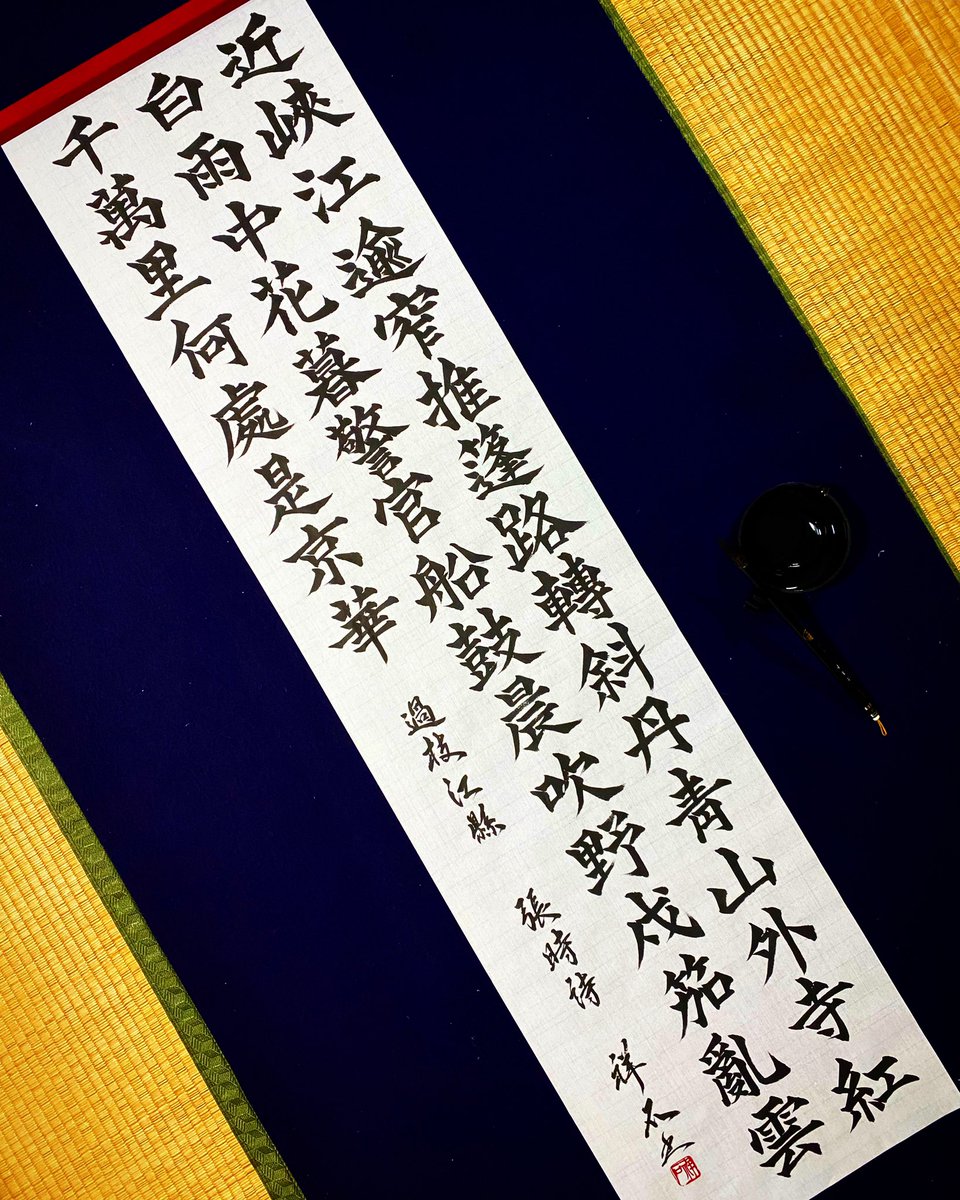 近峽江逾窄推篷路轉斜丹青山外寺紅
白雨中花暮警官船鼓晨吹野戍笳亂雲
千萬里何處是京華
過枝江縣
張時
祥